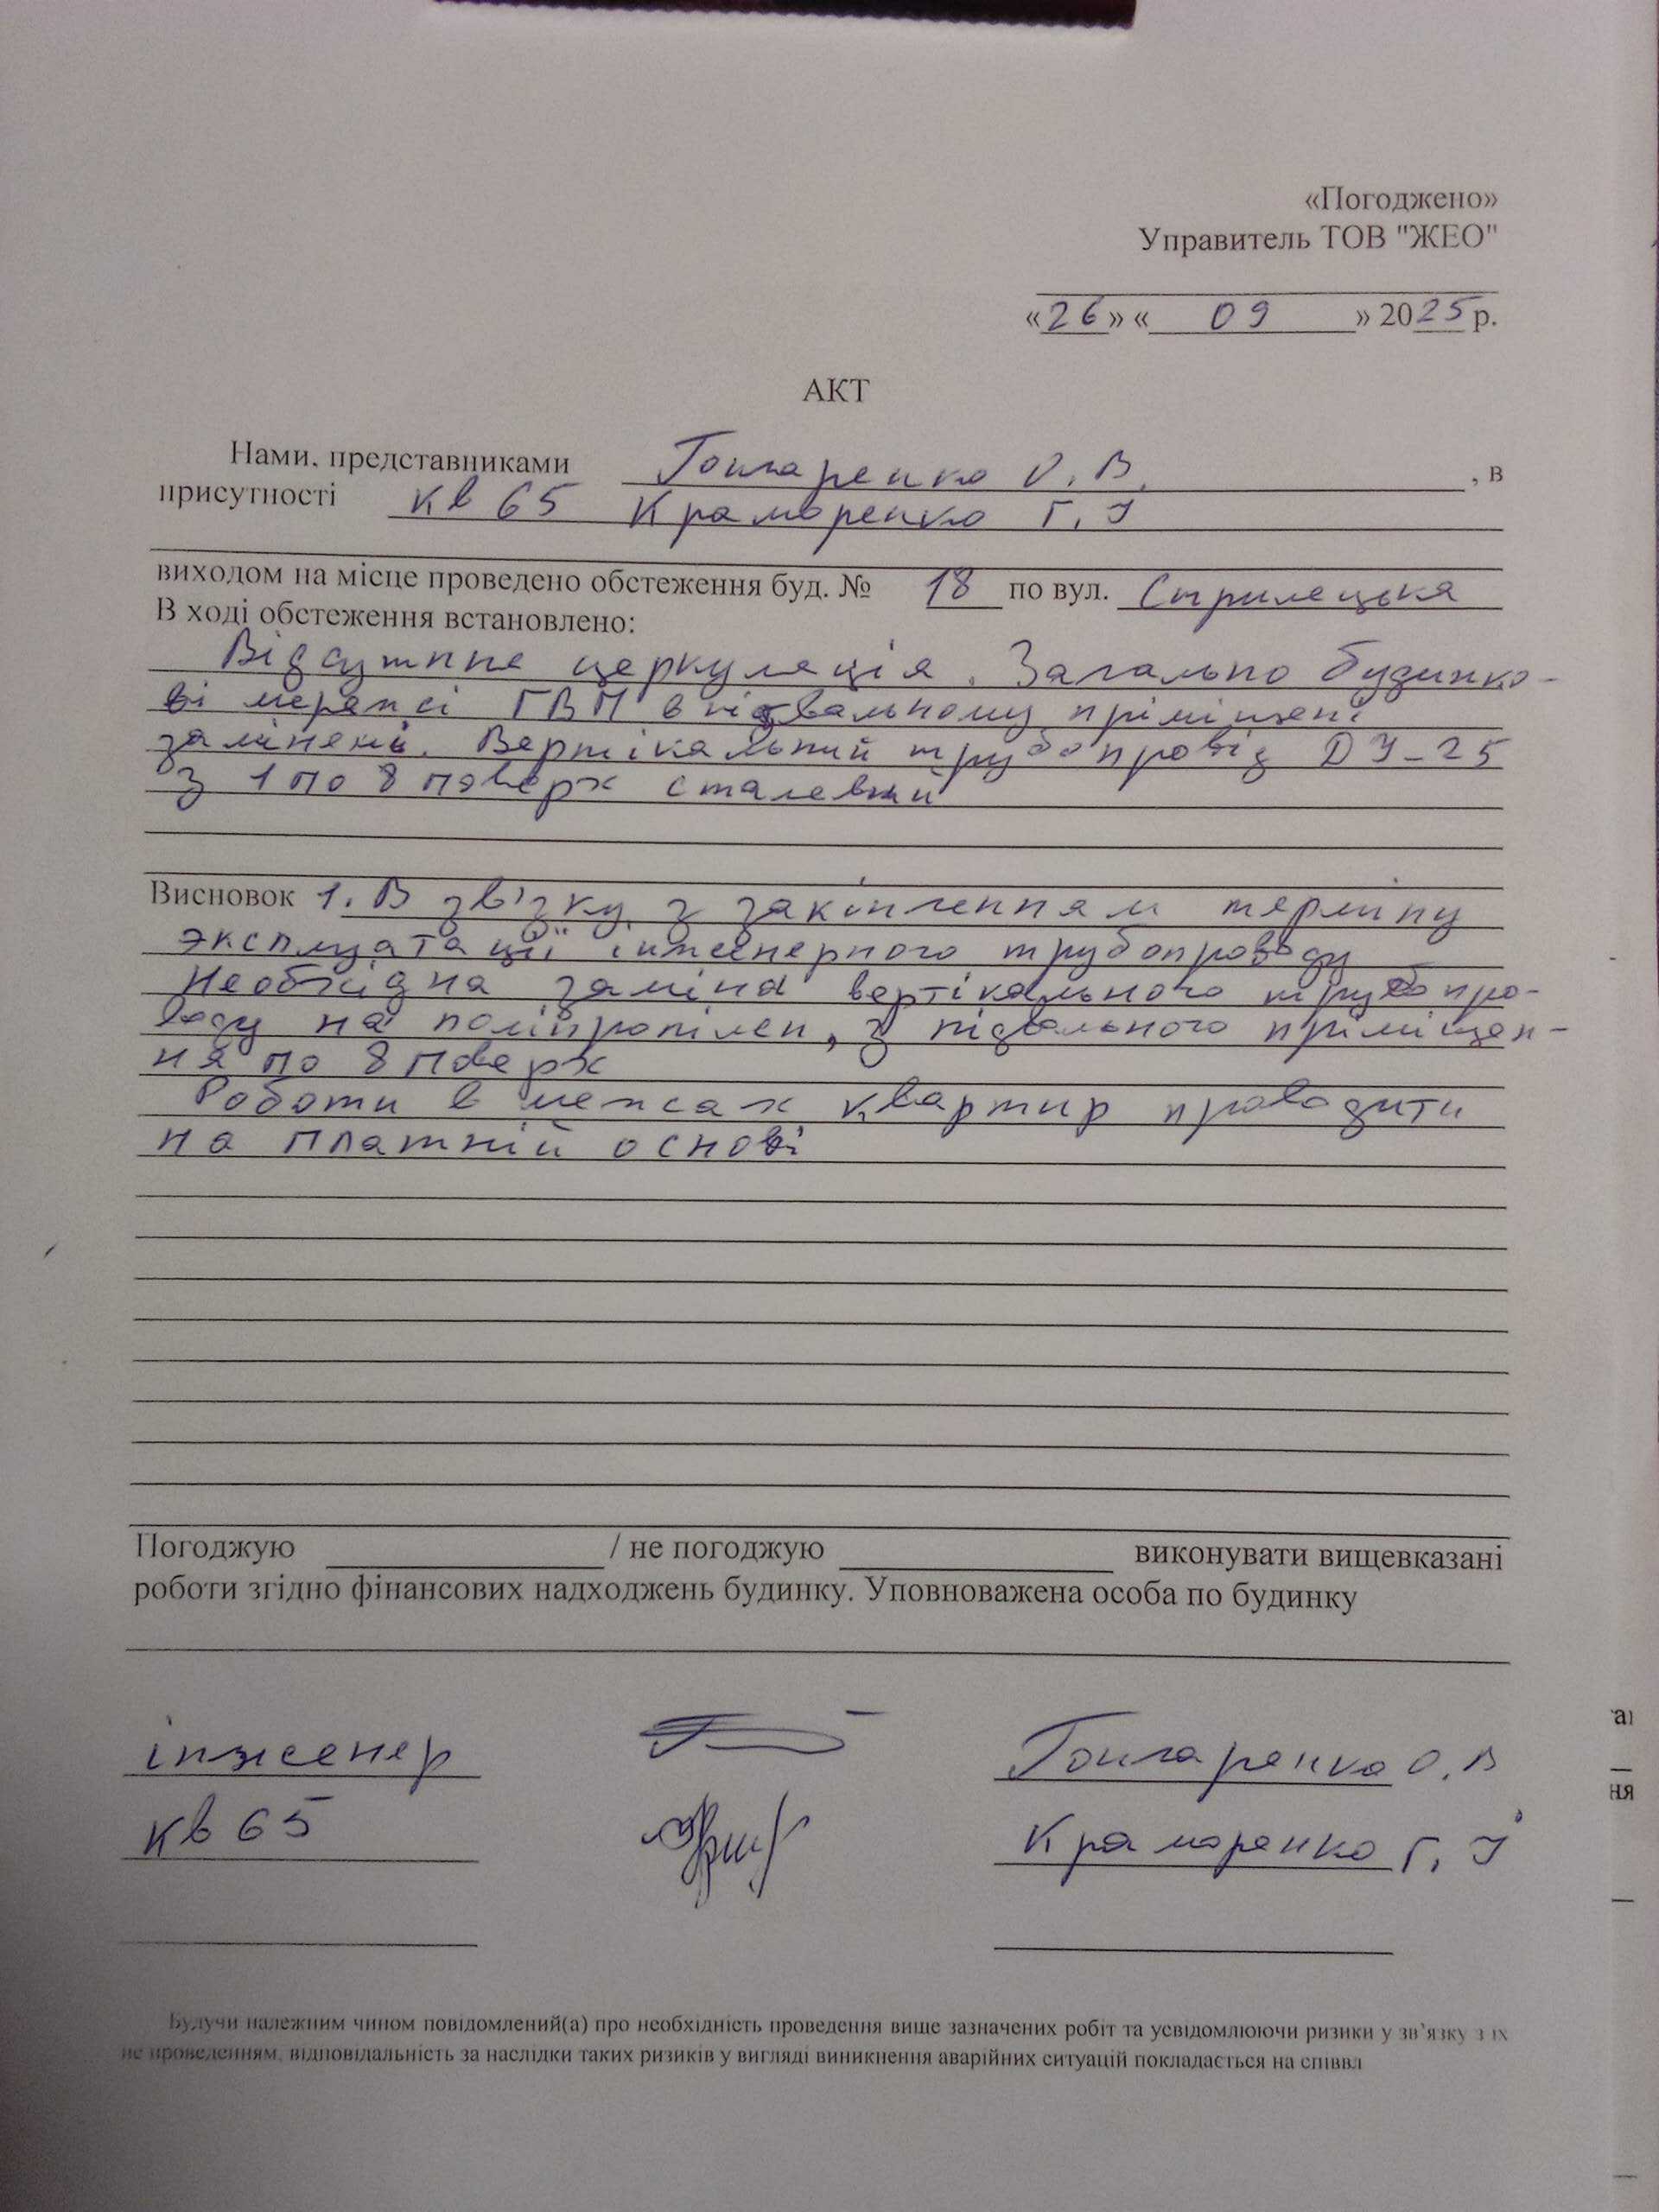 «Погоджено»
Управитель ТОВ "ЖЕО"
«26» « 09 » 2025 р.
АКТ
Нами, представниками Гончаренко О. В. , в
присутності кв 65 Краморенко Г. І
виходом на місце проведено обстеження буд. № 18 по вул. Стрилецька
В ході обстеження встановлено:
Відсутння церкуляція. Загально будинко-
ві мережі ГВП в підвальному приміщені
замінені. Вертікальний трубопровід ДУ-25
з 1 по 8 поверх сталевий
Висновок 1. В зв'зку з закінченням терміну
эксплуатації інженерного трубопроводу
Необхідна заміна вертікального трубопро-
воду на поліпропілен, з підвального приміщен-
ня по 8 поверх
Роботи в межах квартир проводити
на платній основі
Погоджую / не погоджую виконувати вищевказані
роботи згідно фінансових надходжень будинку. Уповноважена особа по будинку
інженер Гончаренко О. В
кв 65 Краморенко Г. І
Будучи належним чином повідомлений(а) про необхідність проведення вище зазначених робіт та усвідомлюючи ризики у зв'язку з їх
не проведенням, відповідальність за наслідки таких ризиків у вигляді виникнення аварійних ситуацій покладається на співвл
ня